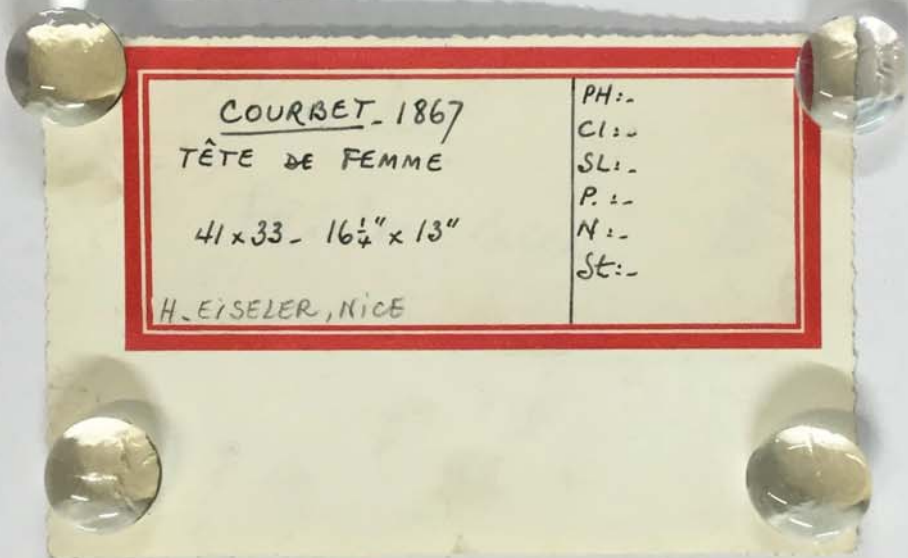 COURBET - 1867
TÊTE DE FEMME
41 x 33 - 16 1/4" x 13"
H. EISELER, NICE
PH:-
Cl:-
SL:-
P.:-
N:-
St:-